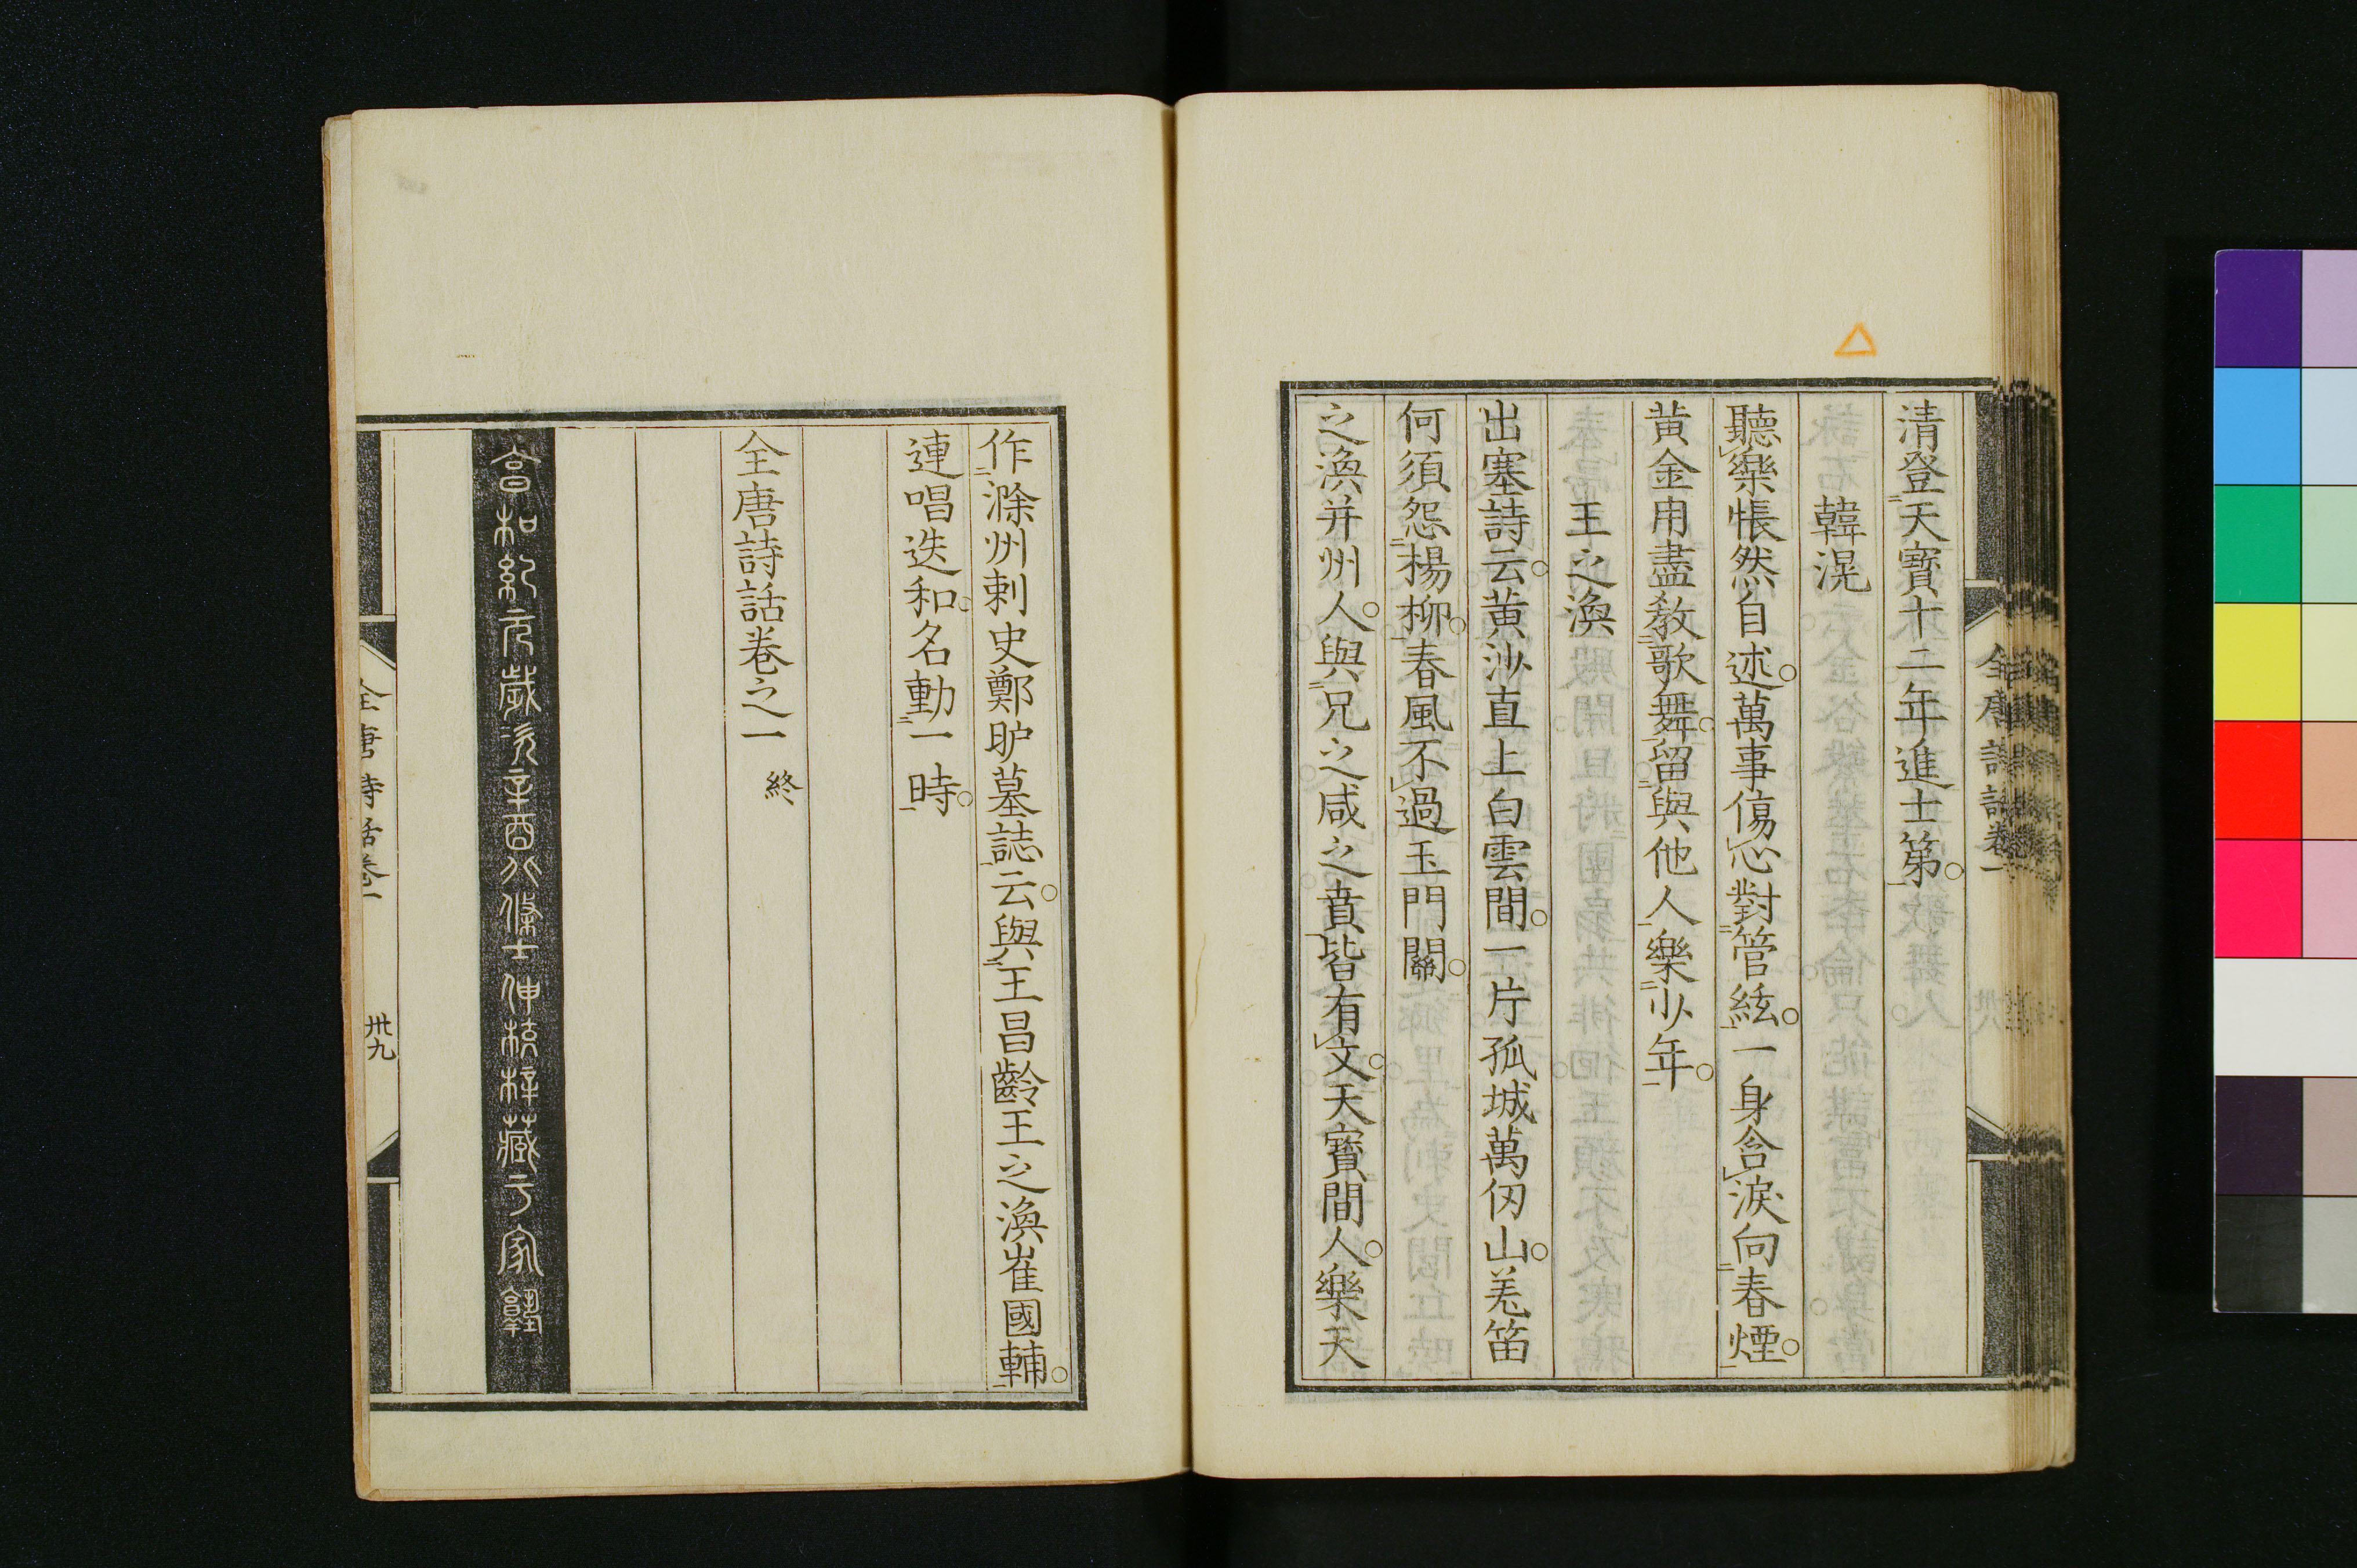 清登天寶十二年進士第
韓滉
聽樂悵然自述萬事傷心對管絃一身含淚向春煙
黄金用盡教歌舞留與他人樂少年
王之渙
出塞詩云黄沙直上白雲間一片孤城萬仞山羌笛
何須怨楊柳春風不過玉門關
之渙并州人與兄之咸之賁皆有文天寶間人樂天
全唐詩話卷一
作滁州刺史鄭昈墓誌云與王昌齡王之渙崔國輔
連唱迭和名動一時
全唐詩話卷之一 終
享和紀元歲次辛酉八條士伸校梓藏于家塾
全唐詩話卷一
卅九